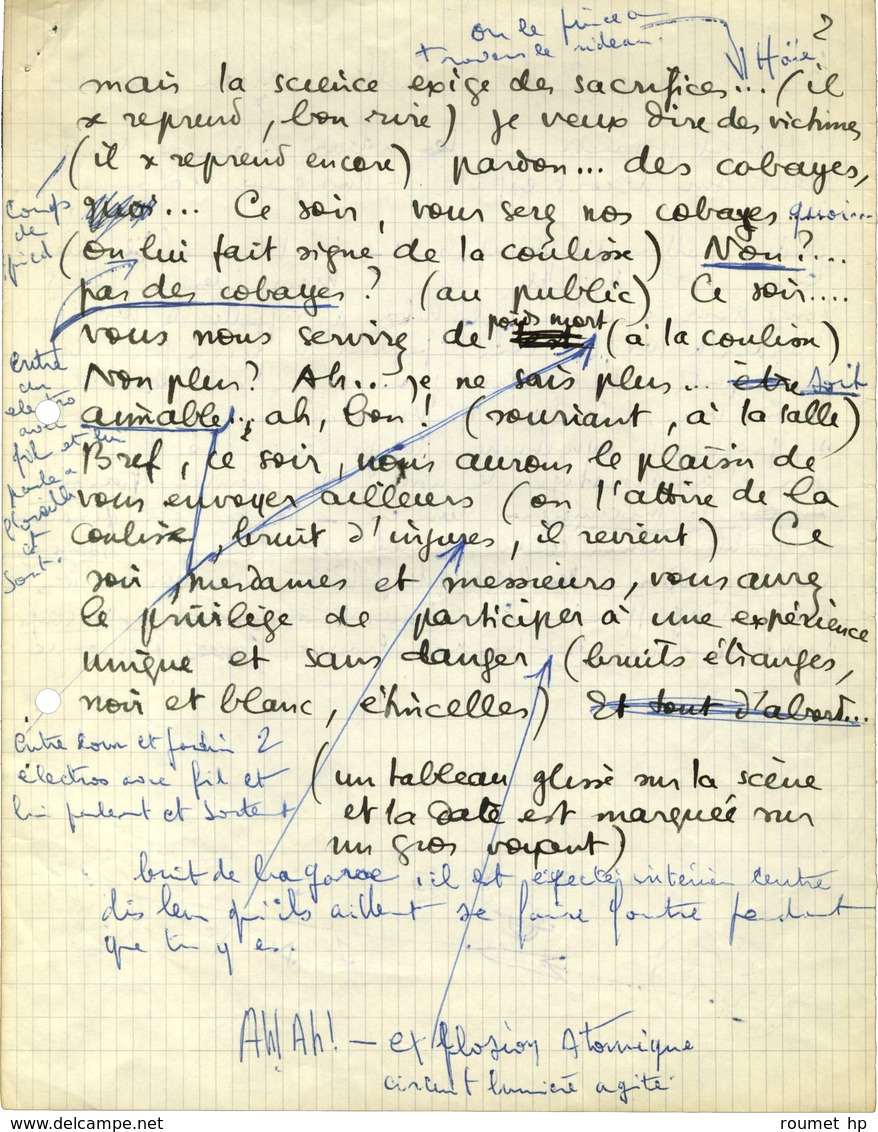 on le pince a
travers le rideau.
2
Haïe
mais la science exige des sacrifices... (il
se reprend, bon rire) je veux dire des victimes
(il se reprend encore) pardon... des cobayes,
quoi... Ce soir, vous serez nos cobayes quoi...
Coups
de
pied
(on lui fait signe de la coulisse) Non?....
pas des cobayes? (au public) Ce soir....
vous nous servirez de poids mort (à la coulisse)
Non plus? Ah... je ne sais plus... être soit
aimable... ah, bon! (souriant, à la salle)
Entre
un
electro
avec
fil et lui
parle a
l'oreille
et
sort.
Bref, ce soir, nous aurons le plaisir de
vous envoyer ailleurs (on l'attire de la
coulisse, bruit d'injures, il revient) Ce
soir, mesdames et messieurs, vous aurez
le privilège de participer à une expérience
unique et sans danger (bruits étranges,
noir et blanc, étincelles) Et tout d'abord...
Entre cour et jardin 2
électros avec fil et
lui parlent et sortent
(un tableau glisse sur la scène
et la date est marquée sur
un gros voyant)
bruit de bagarre, il est éjecté
dis leur qu'ils aillent se faire foutre pendant
que tu y es.
Ah! Ah! — explosion Atomique
circuit lumière agité
roumet hp